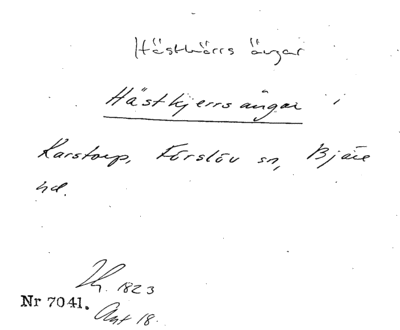 Hästkärrs ängar
Hästkjerrsängar i
Karstorp, Förslöv sn, Bjäre
hd.
Lh. 1823
Nr 7041.
Akt 18.